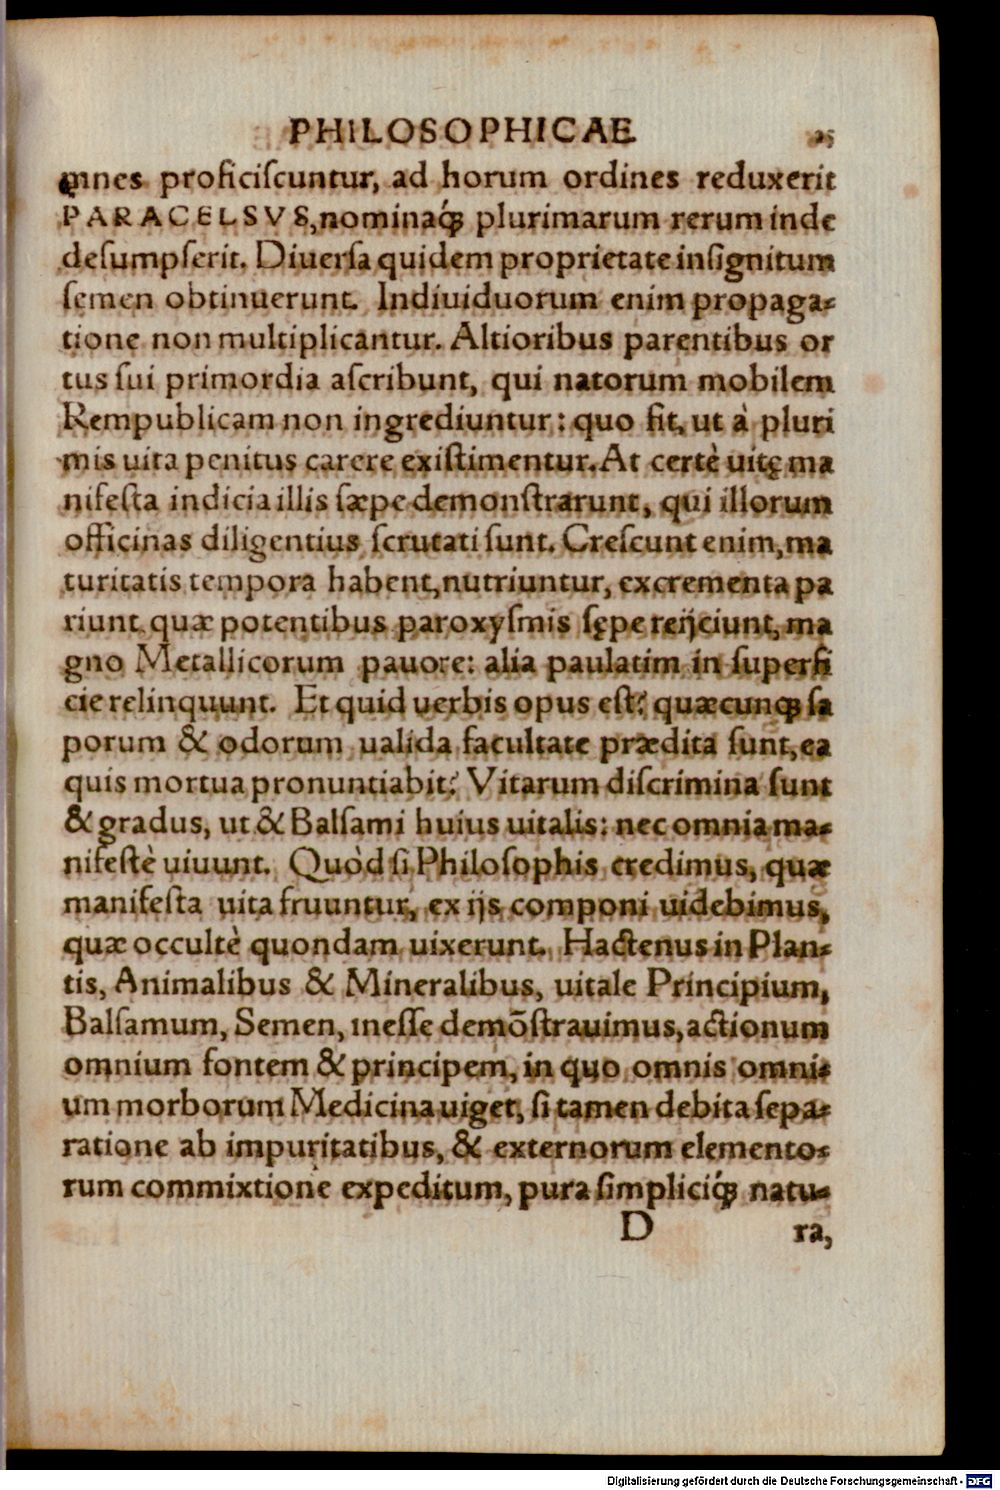 PHILOSOPHICAE 25
omnes proficiſcuntur, ad horum ordines reduxerit
PARACELSVS, nominaq́ꝫ plurimarum rerum inde
deſumpſerit. Diuerſa quidem proprietate inſignitum
ſemen obtinuerunt. Indiuiduorum enim propaga-
tione non multiplicantur. Altioribus parentibus or
tus ſui primordia aſcribunt, qui natorum mobilem
Rempublicam non ingrediuntur: quo fit, ut à pluri
mis uita penitus carere exiſtimentur. At certè uitę ma
nifeſta indicia illis ſæpe demonſtrarunt, qui illorum
officinas diligentius ſcrutati ſunt. Creſcunt enim, ma
turitatis tempora habent, nutriuntur, excrementa pa
riunt, quæ potentibus paroxyſmis ſępe reijciunt, ma
gno Metallicorum pauore: alia paulatim in ſuperfi
cie relinquunt. Et quid uerbis opus eſt? quæcunqꝫ ſa
porum & odorum ualida facultate prædita ſunt, ea
quis mortua pronuntiabit? Vitarum diſcrimina ſunt
& gradus, ut & Balſami huius uitalis: nec omnia ma-
nifeſtè uiuunt. Quòd ſi Philoſophis credimus, quæ
manifeſta uita fruuntur, ex ijs componi uidebimus,
quæ occultè quondam uixerunt. Hactenus in Plan-
tis, Animalibus & Mineralibus, uitale Principium,
Balſamum, Semen, ineſſe demōſtrauimus, actionum
omnium fontem & principem, in quo omnis omni-
um morborum Medicina uiget, ſi tamen debita ſepa-
ratione ab impuritatibus, & externorum elemento-
rum commixtione expeditum, pura ſimpliciq́ꝫ natu-
D ra,
Digitalisierung gefördert durch die Deutsche Forschungsgemeinschaft - DFG